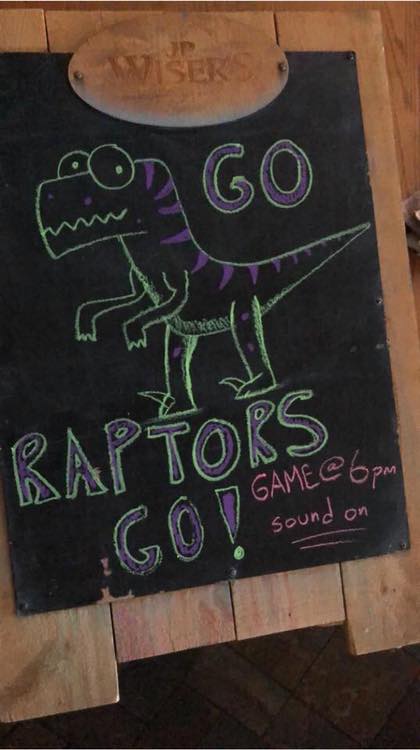 JP
WISER'S
GO
RAPTORS
GO!
GAME@6pm
sound on